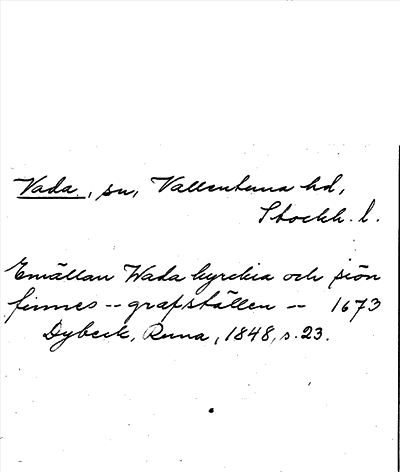 Vada, sn, Vallentuna hd,
Stockh. l.
Emällan Wada kyrckia och siön
finnes -- grafställen -- 1673
Dybeck, Runa, 1848, s. 23.